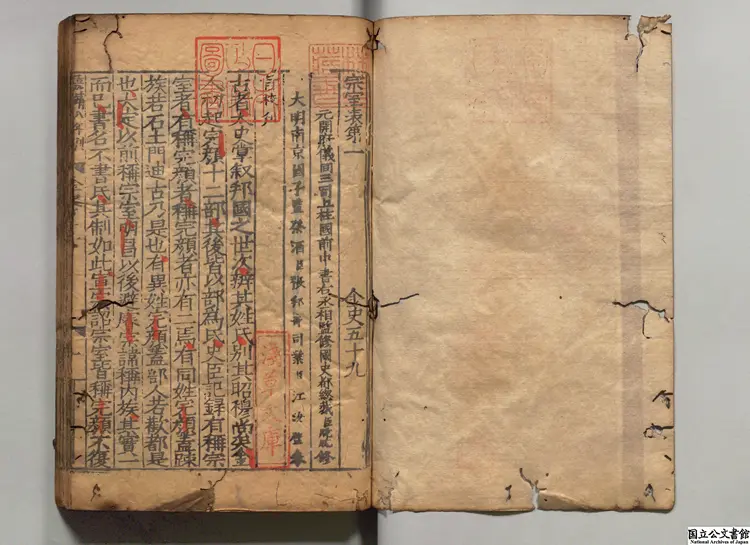 宗室表第一 金史五十九
元開府儀同三司上柱國前中書右丞相監修國史都總裁臣脫脫修
大明南京國子監祭酒臣張邦奇司業臣江汝璧奉
旨校刊
古者太史掌叙邦國之世次辨其姓氏别其昭穆尚矣金
人初起完顔十二部其後皆以部為氏史臣記録有稱宗
室者有稱完顔者稱完顔者亦有二焉有同姓完顔蓋疎
族若石土門迪古乃是也有異姓完顔蓋部人若歡都是
也大定以前稱宗室明昌以後避睿宗諱稱内族其實一
而已書名不書氏其制如此宣宗詔宗室皆稱完顔不復
嘉靖八年刊
淺草文庫
国立公文書館
National Archives of Japan